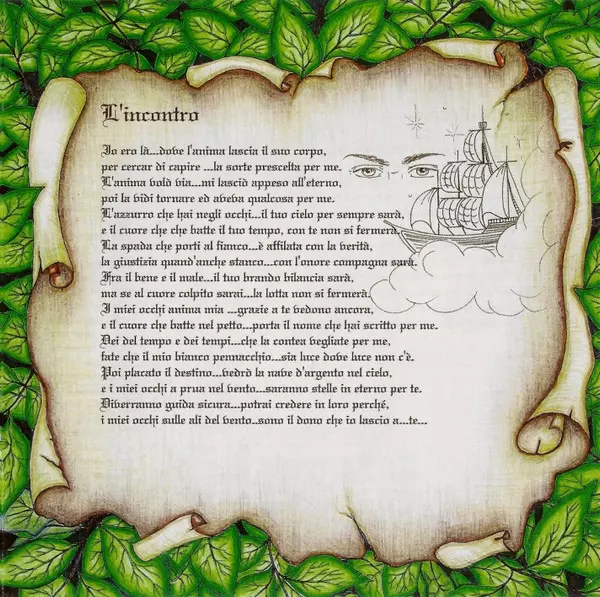 L'incontro
Io ero là...dove l'anima lascia il suo corpo,
per cercar di capire ...la sorte prescelta per me.
L'anima volò via...mi lasciò appeso all'eterno,
poi la vidi tornare ed aveva qualcosa per me.
L'azzurro che hai negli occhi...il tuo cielo per sempre sarà,
e il cuore che che batte il tuo tempo, con te non si fermerà.
La spada che porti al fianco...è affilata con la verità,
la giustizia quand'anche stanco...con l'onore compagna sarà.
Fra il bene e il male...il tuo brando bilancia sarà,
ma se al cuore colpito sarai...la lotta non si fermerà.
I miei occhi anima mia ...grazie a te vedono ancora,
e il cuore che batte nel petto...porta il nome che hai scritto per me.
Dei del tempo e dei tempi...che la contea vegliate per me,
fate che il mio bianco pennacchio...sia luce dove luce non c'è.
Poi placato il destino...vedrò la nave d'argento nel cielo,
e i miei occhi a prua nel vento...saranno stelle in eterno per te.
Diverranno guida sicura...potrai credere in loro perché,
i miei occhi sulle ali del vento..sono il dono che io lascio a...te...